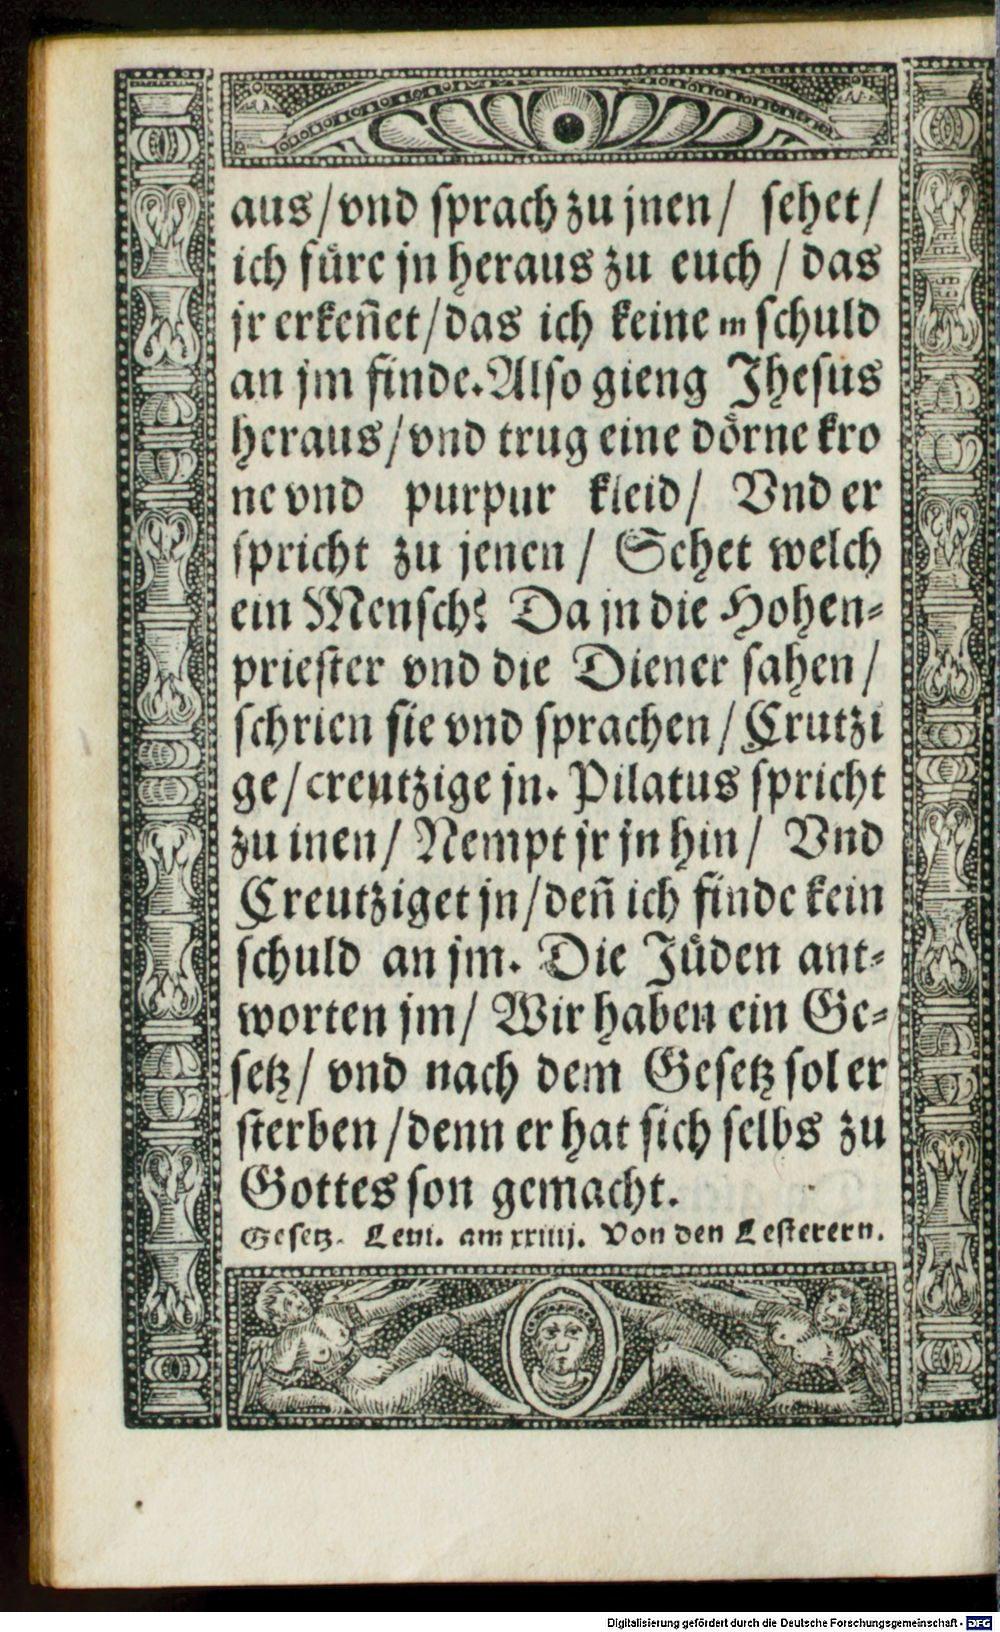 aus/vnd sprach zu jnen/ sehet/
ich füre jn heraus zu euch / das
jr erkeñet/das ich keine schuld
an jm finde.Also gieng Jhesus
heraus/vnd trug eine dörne kro
ne vnd purpur kleid/ Vnd er
spricht zu jenen / Sehet welch
ein Mensch? Da jn die Hohen=
priester vnd die Diener sahen/
schrien sie vnd sprachen/Crutzi
ge/creutzige jn. Pilatus spricht
zu inen/ Nempt jr jn hin/ Vnd
Creutziget jn/deñ ich finde kein
schuld an jm. Die Jüden ant=
worten jm/ Wir haben ein Ge=
setz/ vnd nach dem Gesetz sol er
sterben/denn er hat sich selbs zu
Gottes son gemacht.
Gesetz. Leui. am xxiiij. Von den Lesterern.
Digitalisierung gefördert durch die Deutsche Forschungsgemeinschaft - DFG